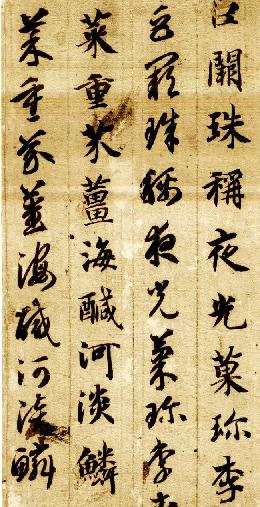 巨闕珠稱夜光菓珎李
巨闕珠稱夜光菓珎李
菜重芥薑海鹹河淡鱗
菜重芥薑海鹹河淡鱗